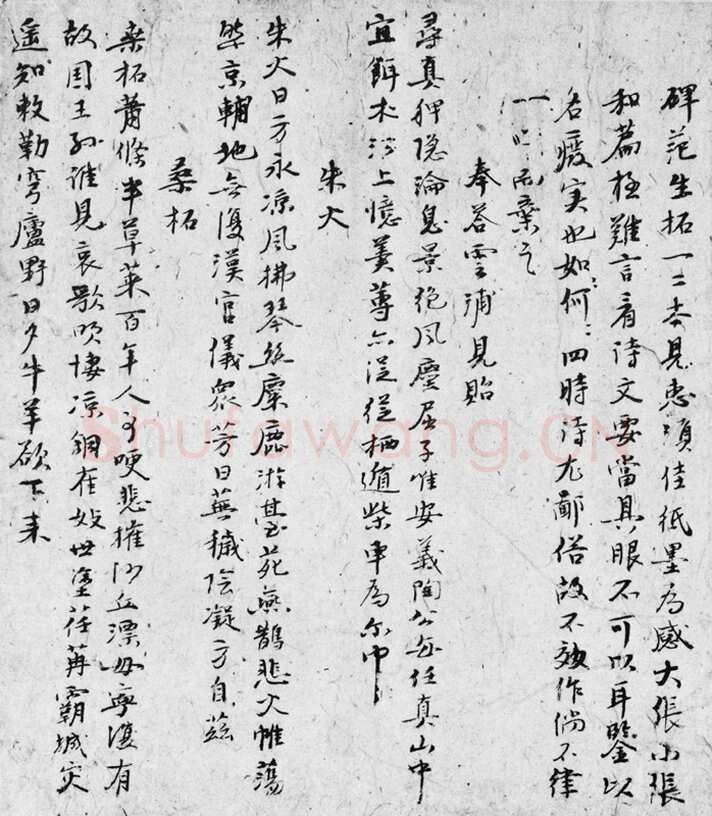 碑范生拓一二本見惠須佳紙墨為感大張小張
和篇極難言看詩文要當具眼不可以耳鑒以
名癈實也如何：四時詩尤鄙俗故不效作倘不律
一咲而棄之
奉荅雲浦見貽
尋真狎隐淪息景絶風塵屈子唯安義陶公每任真山中
宜餌朮沙上憶羹蓴尒從栖遁柴車為尒巾
朱火
朱火日方永凉風拂琴絲麋鹿游臺苑燕鵲悲火帷蕩
槃京輔地無復漢官儀衆芳日蕪穢陰凝方自茲
桑柘
桑柘蕭條半草萊百年人事哽悲摧沙丘漂母寧復有
故國王孫誰見哀歌咲悽凉銅雀妓世塗荏苒霸城灾
遥知敕勒穹廬野日夕牛羊欲下来
Shufawang.CN